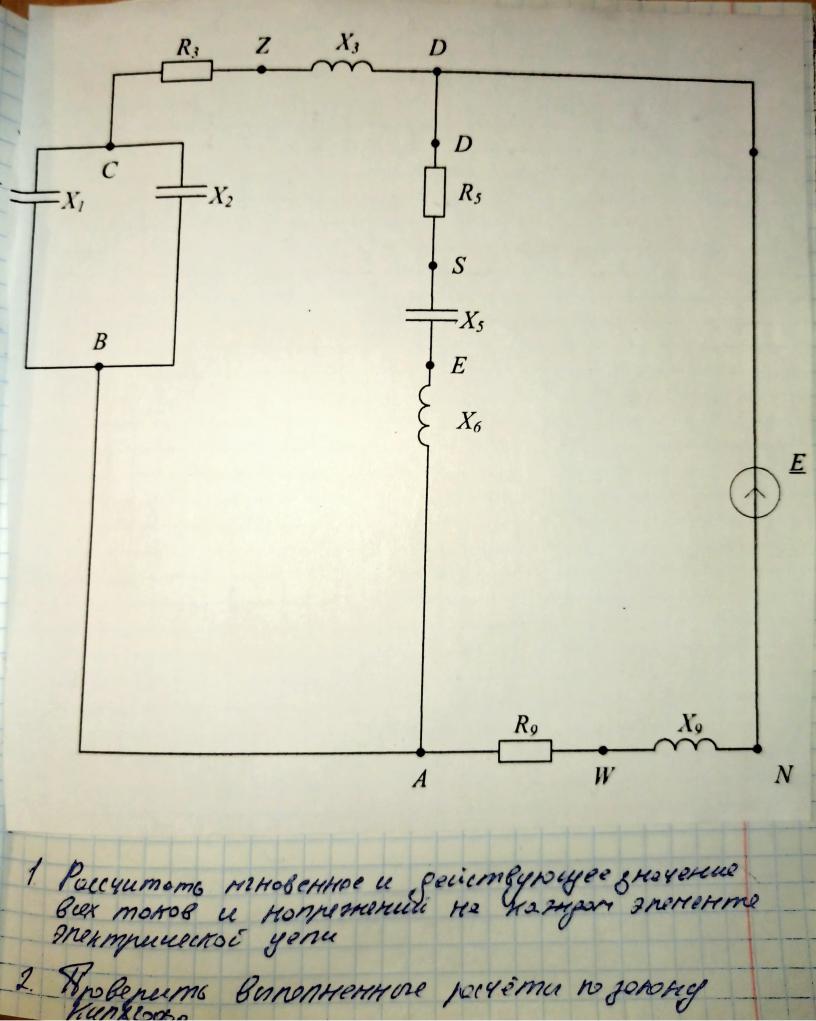 R₃ Z X₃ D
C D
X₁ X₂ R₅
S
X₅
B
E
X₆
E
R₉ X₉
A W N
1 Рассчитать мгновенное и действующее значение
всех токов и напряжений на каждом элементе
электрической цепи
2. Проверить выполненные расчёты по закону
Кирхгофа